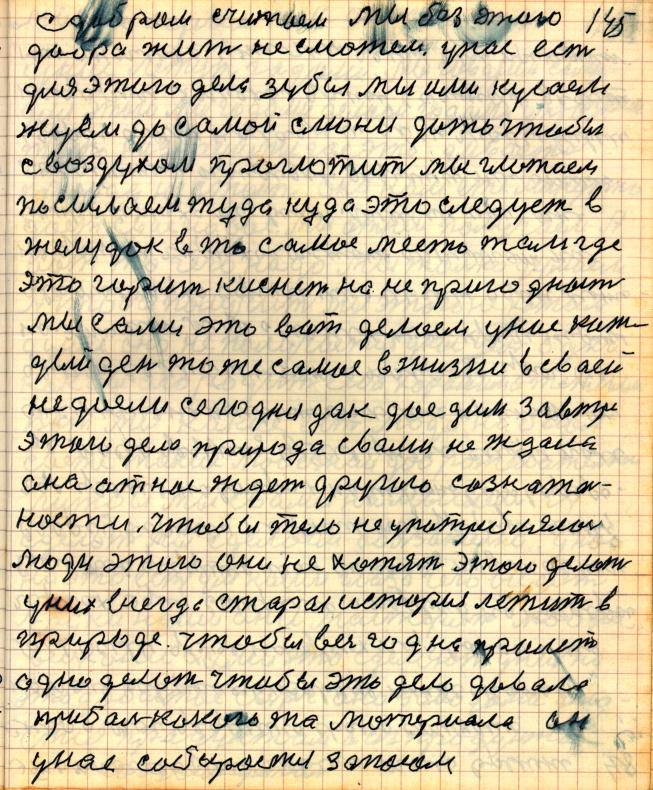 с добром считаем мы без этого 145
добра жит не сможем. унас ест
для этого дела зубы мы ими кусаем
жуем до самой слюни доть чтобы
своздухом проглотит мы глотаем
посилаем туда куда это следует в
желудок в то самое место там где
это горит киснет но не пригодноит
мы сами это вот делаем унас каж-
дый ден то же самое вжизни в своей
не доели сегодни дак доедим завтри
этого дела природа свами не ждала
она отнас ждет другого сознател-
ности. чтобы тело не употреблялос
люди этого они не хотят этого делат
уних внегда старая история летит в
природе. чтобы вегодно
одно делат чтобы это дело довало
прибал какого та материала он
унас собыраеты запасом